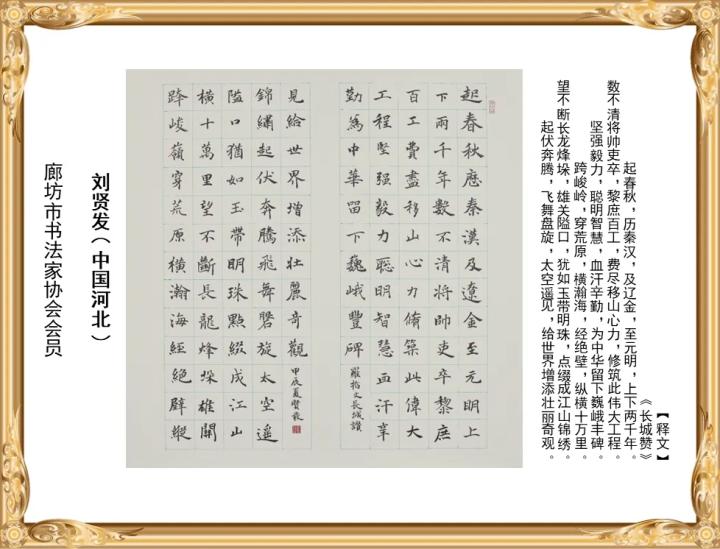 【释文】
《长城赞》
起春秋，历秦汉，及辽金，至元明，上下两千年。
数不清将帅吏卒，黎庶百工，费尽移山心力，修筑此伟大工程。
坚强毅力，聪明智慧，血汗辛勤，为中华留下巍峨丰碑。
跨峻岭，穿荒原，横瀚海，经绝壁，纵横十万里。
望不断长龙烽垛，雄关隘口，犹如玉带明珠，点缀成江山锦绣。
起伏奔腾，飞舞盘旋，太空遥见，给世界增添壮丽奇观。
起春秋歷秦漢及遼金至元明上
下兩千年數不清將帥吏卒黎庶
百工費盡移山心力脩築此偉大
工程堅强毅力聰明智慧血汗辛
勤為中華留下巍峨豐碑
羅哲文長城讚
跨峻嶺穿荒原橫瀚海經絕壁縱
橫十萬里望不斷長龍烽垛雄關
隘口猶如玉帶明珠點綴成江山
錦繡起伏奔騰飛舞磐旋太空遥
見給世界增添壯麗奇觀
甲辰夏賢發
刘贤发（中国河北）
廊坊市书法家协会会员